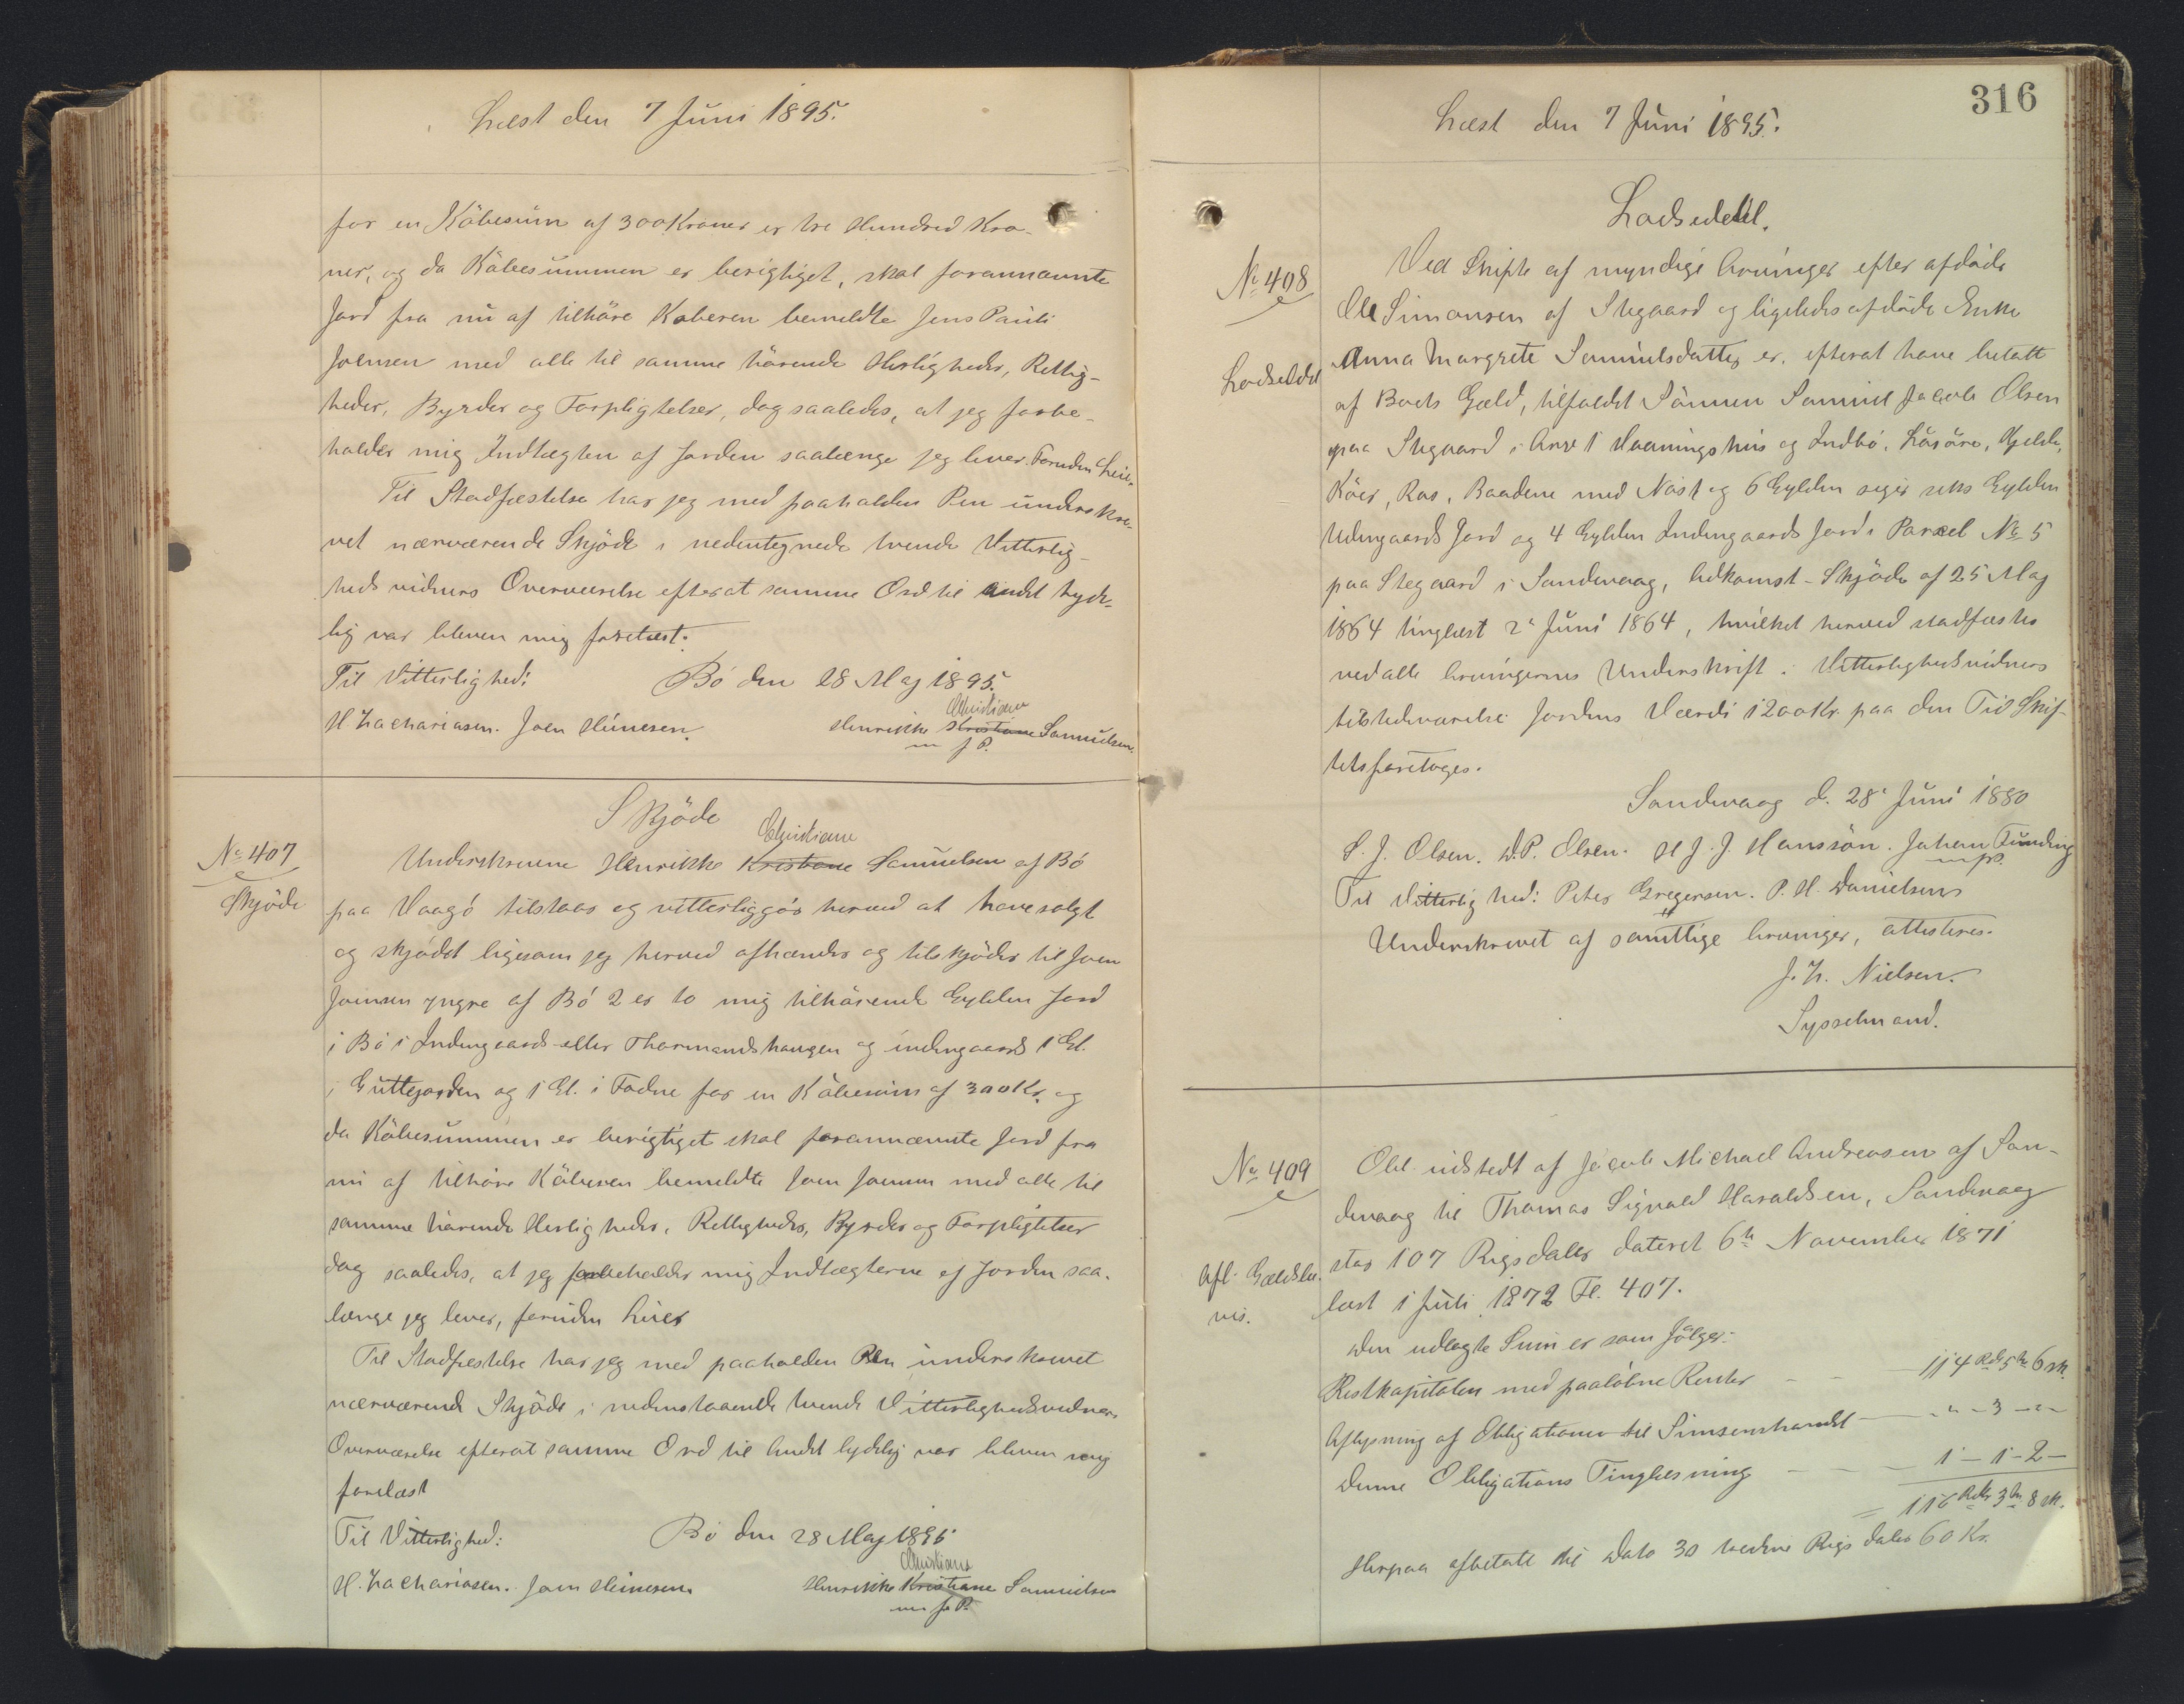 Læst den 7 Juni 1895.
for en Köbesum af 300 Kroner er tre Hundred Kro-
ner, og da Köbesummen er berigtiget, skal forannævnte
Jord fra nu af tilhöre Köberen bemeldte Jens Pauli
Joensen med alle til samme hörende Herligheder, Rettig-
heder, Byrder og Forpligtelser, dog saaledes, at jeg forbe-
holder mig Indtægten af Jorden saalænge jeg lever. Foruden Leie.
Til Stadfæstelse har jeg med paaholden Pen underskre-
vet nærværende Skjöde i nedentegnede tvende Vitterlig-
heds vidners Overværelse efterat samme Ord til andet tyde-
lig var bleven mig forelæst.
Til Vitterlighed: Bö den 28 Maj 1895.
Christiane
H Zachariasen. Joen Heinesen. Henrikke Kristiane Samuelsen
m f P.
Skjöde
No 407
Skjöde
Christiane
Underskrevne Henrikke Kristiane Samuelsen af Bö
paa Vaagö tilstaar og vitterliggör herved at have solgt
og skjödet ligesom jeg herved afhænder og tilskjöder til Joen
Joensen yngre af Bö 2 er to mig tilhörende Gylden Jord
i Bö i Indengaards eller Thormandshaugen og indengaards 1 Gl.
i Guttejorden og 1 Gl. i Fodne for en Köbesum af 300 Kr. og
da Köbesummen er berigtiget skal forannævnte Jord fra
nu af tilhöre Köberen bemeldte Joen Joensen med alle til
samme hörende Herligheder, Rettigheder, Byrder og Forpligtelser
dog saaledes, at jeg forbeholder mig Indtægterne af Jorden saa-
længe jeg lever, foruden Leier
Til Stadfæstelse har jeg med paaholden Pen underskrevet
nærværende Skjöde i nedenstaaende tvende Vitterlighedsvidners
Overværelse efterat samme Ord til Andet tydelig var bleven mig
forelæst
Til Vitterlighed: Bö den 28 Maj 1895
Christiane
H. Zachariasen. Joen Heinesen Henrikke Kristiane Samuelsen
m f P.
316
Læst den 7 Juni 1895.
Lodseddel.
No 408
Lodseddel
Ved Skifte af myndige Arvinger efter afdöde
Ole Simonsen af Stegaard og ligeledes afdöde Enke
Anna Margrete Samuelsdatter er, efterat have betalt
af Boets Gæld, tilfaldet Sönnen Samuel Jacob Olsen
paa Stegaard i Arv 1 Vaaningshus og Indbo, Lösöre, Hjelde,
Köer, Ros, Baadene med Nöst og 6 Gylden siger seks Gylden
Udengaards Jord og 4 Gylden Indengaards Jord i Parzel No 5
paa Stegaard i Sandevaag, Adkomst-Skjöde af 25 Maj
1864 tinglæst 2' Juni 1864, hvilket herved stadfæstes
ved alle Arvingernes Underskrift i Vitterlighedsvidners
tilstedeværelse Jordens Værdi 1200 Kr. paa den Tid Skif-
tet foretoges.
Sandevaag d. 28' Juni 1880
S. J. Olsen. D. P. Olsen. H J. J. Hanssön. Johan Tunding
m f P.
Til Vitterlighed: Peter Gregersen. P. H. Danielsen
Underskrevet af samttlige Arvinger, attesteres.
J. H. Nielsen.
Sysselmand.
No 409
Afl. Gældsbe-
vis.
Obl. udstedt af Jacob Michael Andreasen af San-
devaag til Thomas Sigvald Haraldsen, Sandevaag
stor 107 Rigsdaler dateret 6te November 1871
læst 1 Juli 1872 Fl. 407.
Den udlagte Sum er som fölger:
Restkapitalen med paalöbne Renter - - 114 Rd 5 k 6 sk.
Aflysning af Obligationen til Simsenshandel - " - 3 - " -
Denne Obligations Tinglæsning - - - 1 - 1 - 2 -
= 116 Rdr 3 k 8 sk.
Herpaa afbetalt til Dato 30 tredive Rigsdaler 60 Kr.